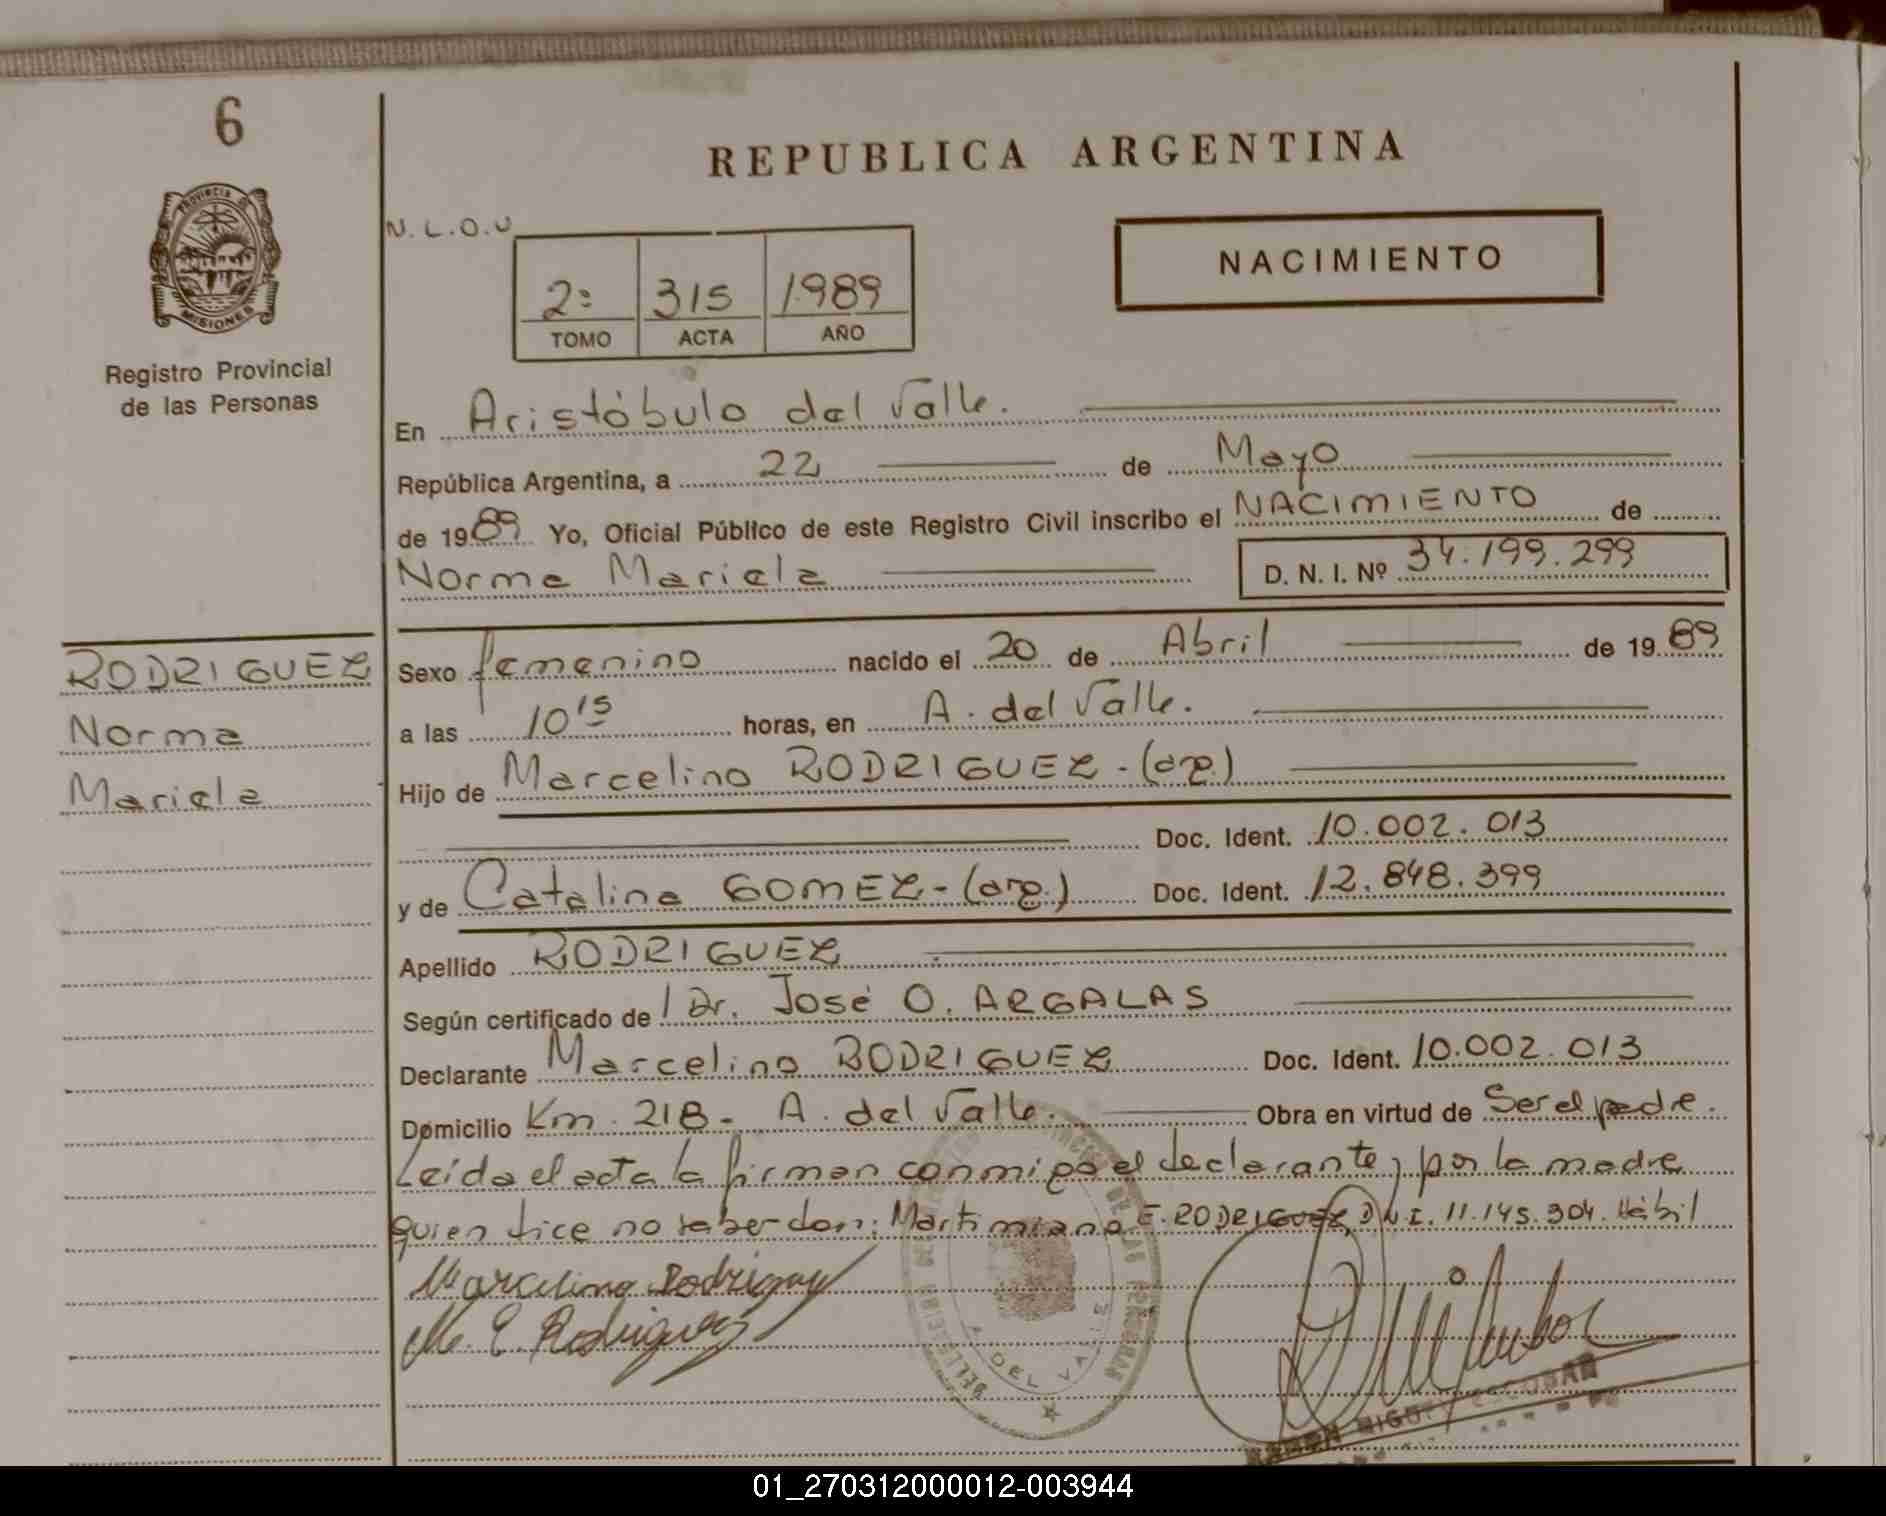 6
REPUBLICA ARGENTINA
PROVINCIA DE
MISIONES
Registro Provincial
de las Personas
N.L.O.U
2º 315 1989
TOMO ACTA AÑO
NACIMIENTO
En Aristóbulo del Valle.
República Argentina, a 22 de Mayo
de 1989 Yo, Oficial Público de este Registro Civil inscribo el NACIMIENTO de
Norma Mariela D. N. I. Nº 34.199.299
RODRIGUEZ
Norma
Mariela
Sexo femenino nacido el 20 de Abril de 1989
a las 10 15 horas, en A. del Valle.
Hijo de Marcelino RODRIGUEZ - (arg.)
Doc. Ident. 10.002.013
y de Catalina GOMEZ - (arg.) Doc. Ident. 12.848.399
Apellido RODRIGUEZ
Según certificado de l Dr. José O. ARGALAS
Declarante Marcelino RODRIGUEZ Doc. Ident. 10.002.013
Domicilio Km. 218 - A. del Valle. Obra en virtud de Ser el padre.
Leída el acta la firman conmigo el declarante y por la madre
quien dice no saber don: Martimiano E. RODRIGUEZ, D.N.I. 11.145.304. Hábil
Marcelino Rodriguez
M. E. Rodriguez
A. DEL VALLE
RAMON MIGUEL ESCOBAR
01_270312000012-003944